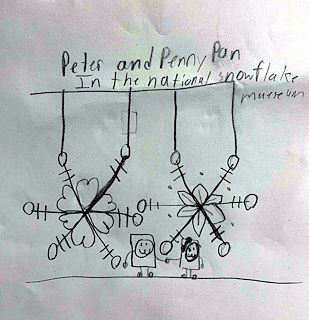 Peter and Penny Pan
In the national snowflake
mueseum